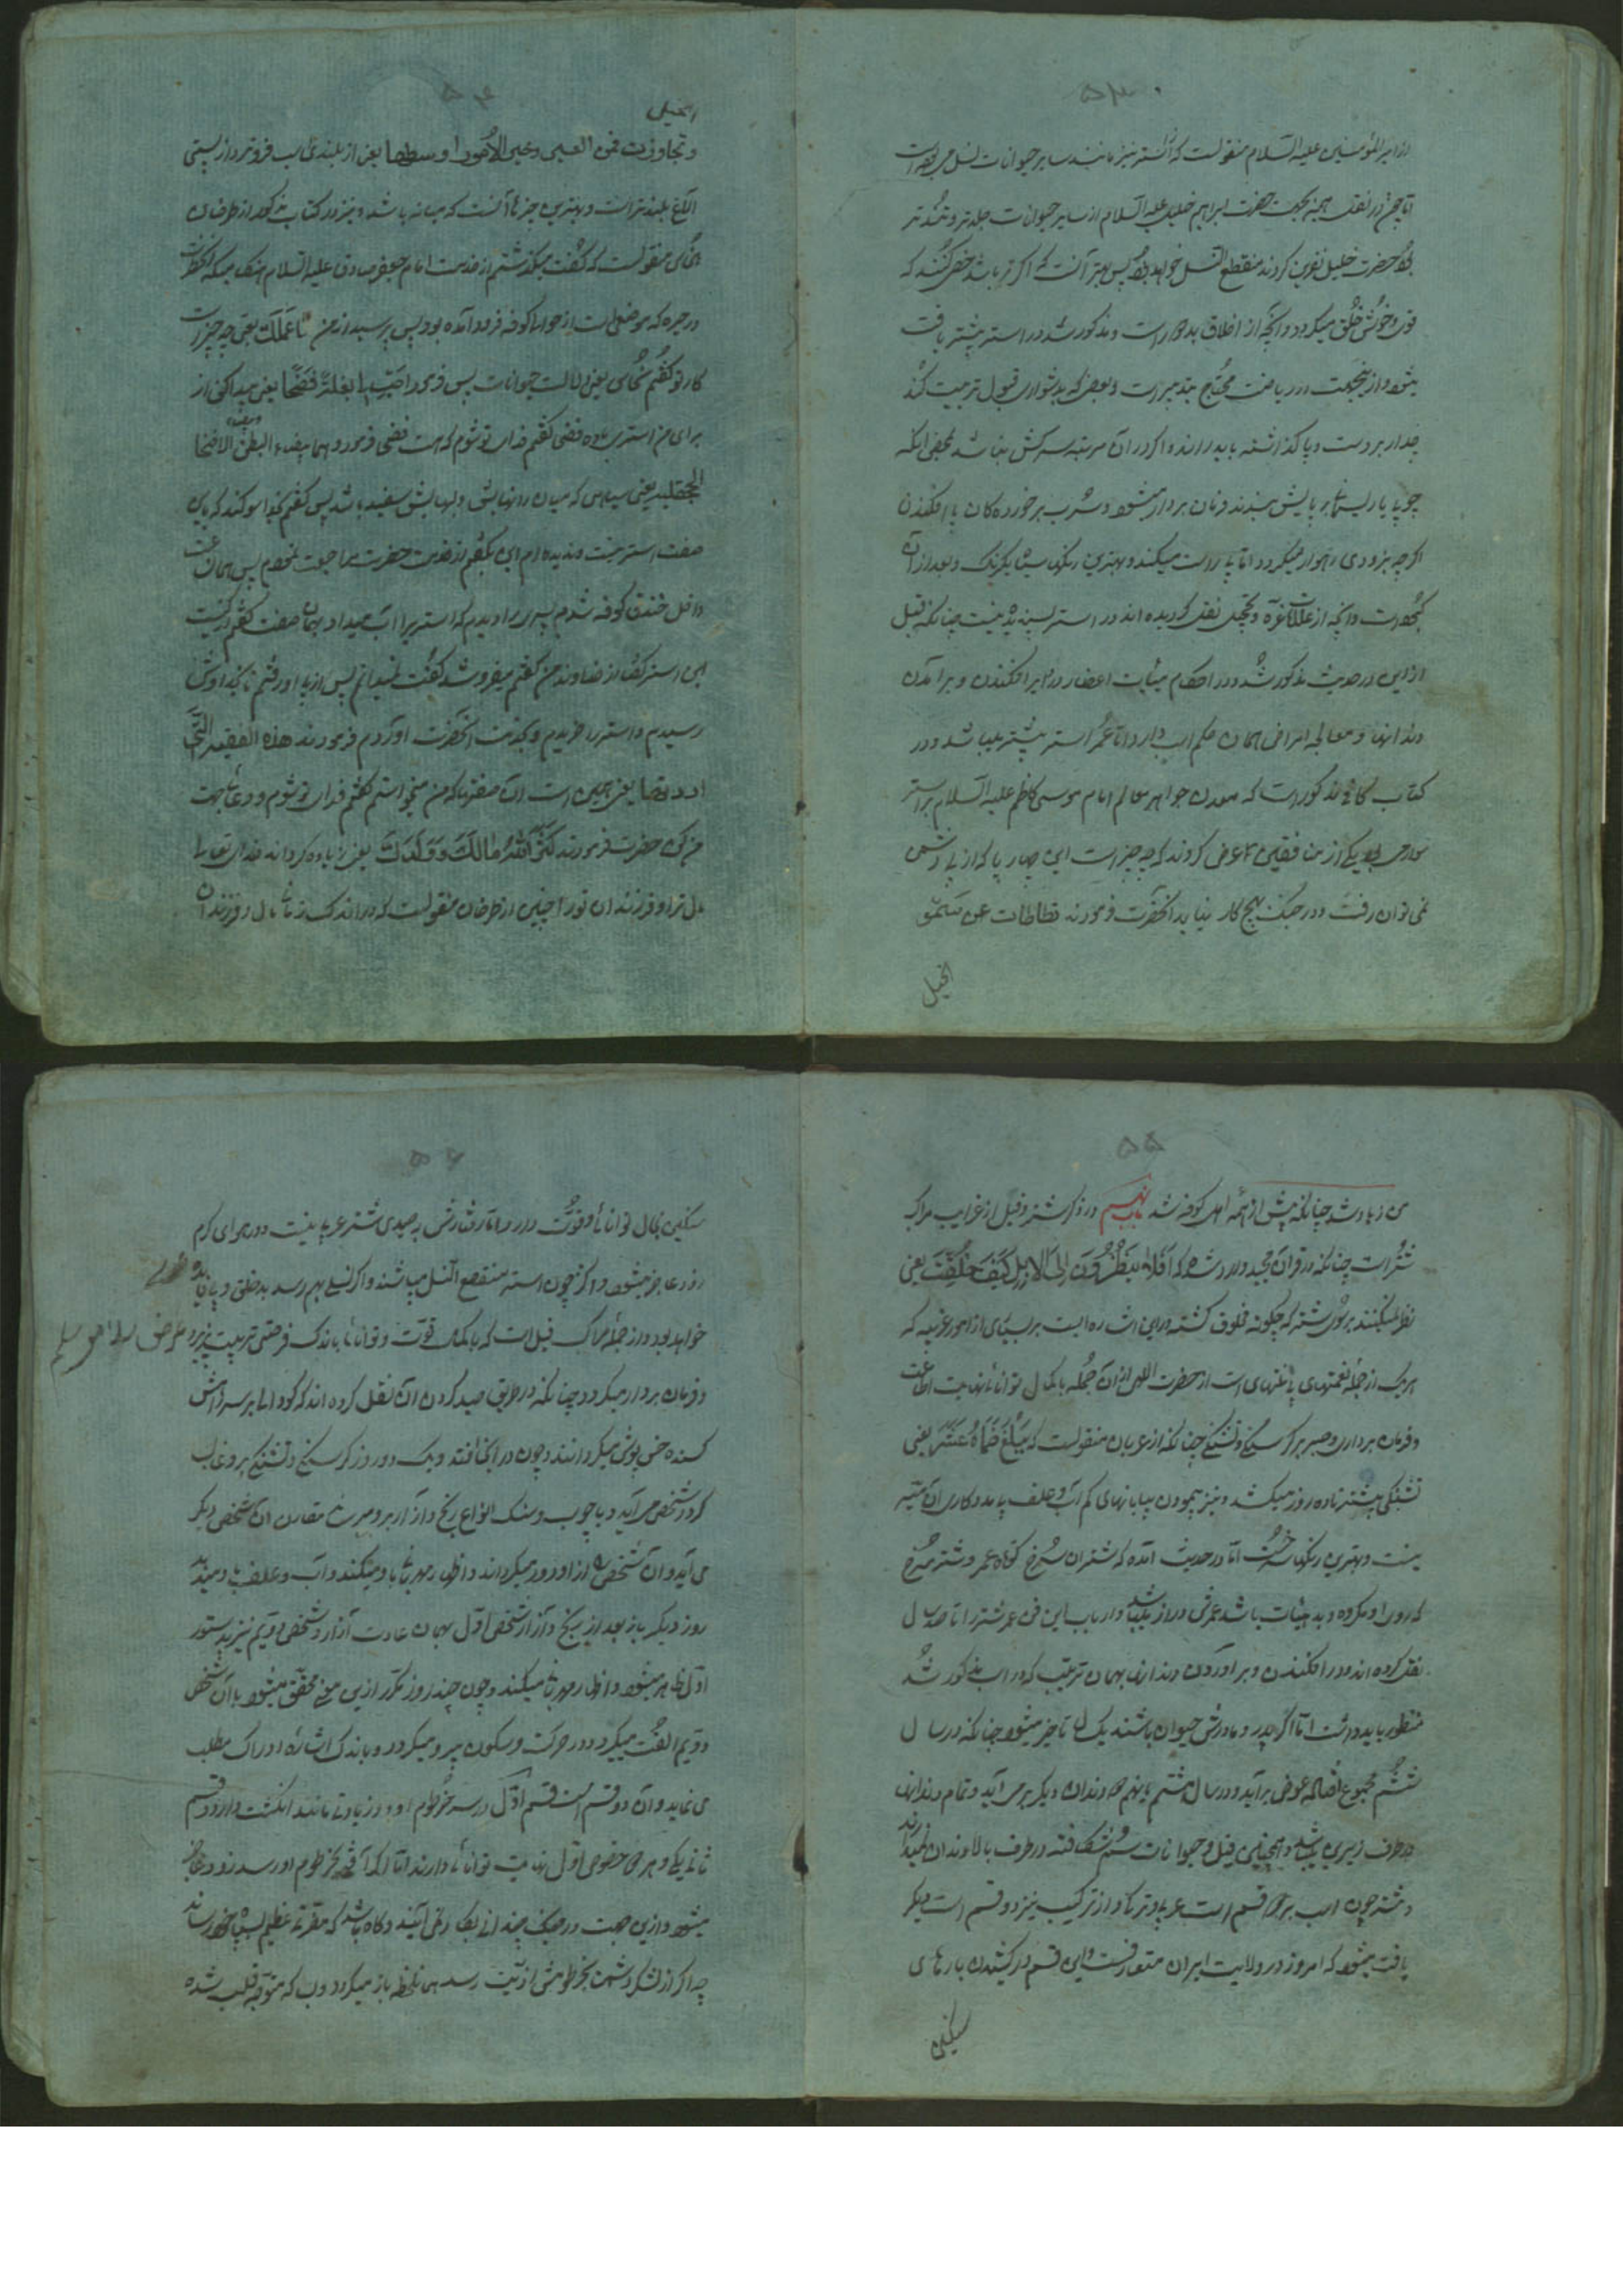 ۵۳
از امیرالمؤمنین علیه السلام منقولست که استر نیز مانند سایر حیوانات نسل می
اما چون در نقل همیه بجهت حضرت ابراهیم خلیل علیه السلام از سایر حیوانات جلدتر و تندتر
بود حضرت خلیل نفرین کردند منقطع النسل خواهد بود پس بهتر آنست که اگر نر باشد خصی کنند که
قوی و خوش خلق میگردد و آنچه از اخلاق بد مذکور شد در استر بیشتر یافت
میشود از اینجهت در ریاضت محتاج بتدبیر است و بعضی که بدشواری قبول تربیت کند
بر دست و پا گذاشته باید راند و اگر در آن مرتبه سرکش نباشد محض اینکه
چوب یا ریسمان بر پایش ببندند فرمان بردار میشود و
اگرچه بزودی راهوار میگردد اما پا راست میکند و بهترین رنگها سیاه یکرنگ و بعد از آن
و آنچه از علامات نقل کردیده اند در استر پسندیده نیست چنانکه قبل
از این در حدیث مذکور شد و در احکام اعضا و دندان برافکندن و برآمدن
دندانها و معالجه امراض همان حکم اسب دارد اما عمر استر بیشتر میباشد و در
کتاب کافی مذکور است که معدن جواهر معالم امام موسی کاظم علیه السلام بر استر
سوار بود یکی از منافقین عرض کردند که چه چیز است این چهارپا که از پی دشمن
نمی توان رفت و در جنگ هیچ کار نیاید آنحضرت فرمودند تطاطات عن سمو
الخیل
۵۴
الخیل
و تجاوزت قمؤ العیر و خیر الامور اوسطها یعنی از بلندی اسب فروتر و از پستی
الاغ بلندتر است و بهترین چیزها آنست که میانه باشد و نیز در کتاب مذکور از طرخان
نخاس منقولست که گفت میگذشتم از خدمت امام جعفر صادق علیه السلام هنگامیکه آنحضرت
در حیره که موضعی است از حوالی کوفه فرود آمده بود پس پرسید از من ما عملک یعنی چه چیز است
کار تو گفتم نخاس یعنی دلالت حیوانات پس فرمود اصب لی بغلة فضحا یعنی پیدا کن از
برای من استری ماده فضحا گفتم فدای تو شوم که هست فضحا فرمود دهماء بیضاء البطن بیضاء الافخاذ
بیضاء الجحفله یعنی سیاهی که میان رانهایش و لبهایش سفید باشد پس گفتم بخدا سوگند که باین
صفت استر نیست و ندیده ام این بگفتم از خدمت حضرت مراجعت نمودم پس همان ساعت
داخل خندق کوفه شدم پسری را دیدم که استری را آب میداد بهمان صفت گفتم از کیست
این استر گفت از خداوند من گفتم میفروشد گفت نمیدانم پس از پی او رفتم تا بخداوندش
رسیدم و استر را خریدم و بخدمت آنحضرت آوردم فرمودند هذه الصفه التی
اردتها یعنی همین است آن صفتی که من میخواستم گفتم فدای تو شوم دعا بجهت
من کن حضرت فرمودند کثر الله مالک و ولدک یعنی زیاده گرداند خدای تعالی
مال ترا و فرزندان تو را چنین از طرخان منقولست که در اندک زمانی مال و فرزندان
۵۵
من زیاد شد چنانکه بیش از همه اهل کوفه شد باب نهم در ذکر شتر و فیل از غرایب مراکب
شتر است چنانکه در قرآن مجید وارد شده که افلا ینظرون الی الابل کیف خلقت یعنی
نظر نمیکنند بسوی شتر که چگونه مخلوق گشته و این اشاره است بر بسیاری از امور غریبه که
هریک از جمله نعمتهای بی منتهای است از حضرت اللهی از آن جمله با کمال توانائی نهایت اطاعت
و فرمان برداری و صبر بر گرسنگی و تشنگی چنانکه از عربان منقولست که یبلغ ظماه عشر یعنی
تشنگی شتر تا ده روز میکشد و نیز پیمودن بیابانهای کم آب و علف بی مددکاری آن میسر
نیست و بهترین رنگها سرخست اما در حدیث آمده که شتران سرخ کوتاه عمر و شتر سرخ
که روی او مکروه و بدهیئات باشد عمرش دراز میباشد و ارباب این فن عمر شتر را تا صد سال
نقل کرده اند و در افکندن و برآوردن دندان بهمان ترتیب که در اسب مذکور شد
منظور باید داشت اما اگر پدر و مادرش جوان باشند یک سال تاخیر میشود چنانکه در سال
ششم مجموع عوض برآید و در سال هشتم یا نهم دندان دیگر بر می آید و تمام دندانها
در طرف زیرین میباشد و همچنین فیل و حیوانات سم شکافته در طرف بالا دندان ندارند
و شتر چون اسب بر دو قسم است عربی و ترکی و از ترکیب نیز دو قسم است دیگر
یافت میشود که امروز در ولایت ایران متعارفست و این قسم در کشیدن بارهای
سنگین
۵۶
سنگین کمال توانائی و قوت دارد اما رفتارش به جلدی شتر عربی نیست و در هوای گرم
زود عاجز میشود و اگر چون استر منقطع النسل میباشند و اگر نسلی بهم رسد بدخلق و
خواهد بود و از جمله مراکب فیل است که با کمال قوت و توانائی باندک فرصتی تربیت پذیر
و فرمان بردار میگردد چنانکه در طریق صید کردن آن نقل کرده اند که گودالی بر سر راهش
کنده خس پوش میگردانند و چون در آنجا افتد و یک دو روز گرسنگی و تشنگی بر وی غالب
گردد شخصی می آید و با چوب و سنگ انواع رنج و آزار بر او میرساند مقارن آن شخص دیگر
می آید و آن شخص را از او دور میگرداند و اظهار مهربانی با او میکند و آب و علف باو میدهد
روز دیگر باز بعد از رنج و آزار شخص اول بهمان عادت آزار و شخص دویم نیز بدستور
اول ظاهر میشود و اظهار مهربانی میکند و چون چند روز مکرر ازین معنی محقق میشود با آن شخص
دویم الفت میگیرد و در حرکت و سکون پیرو میگردد و باندک اشاره ادراک مطلب
می نماید و آن دو قسم است قسم اول در سر خرطوم او دو زیادتی مانند انگشت دارد و قسم
ثانی یکی و هر دو خصوص اول نهایت توانائی دارند اما اگر آفتی بخرطوم او رسد زود عاجز
میشود و ازین جهت در جنگ چندان بکار نمی آیند و گاه باشد که مضرت عظیم بسپاه خود رساند
چه اگر از لشکر دشمن بخرطومش اذیت رسد همان لحظه باز میگردد و بر که متوجه قلب شده